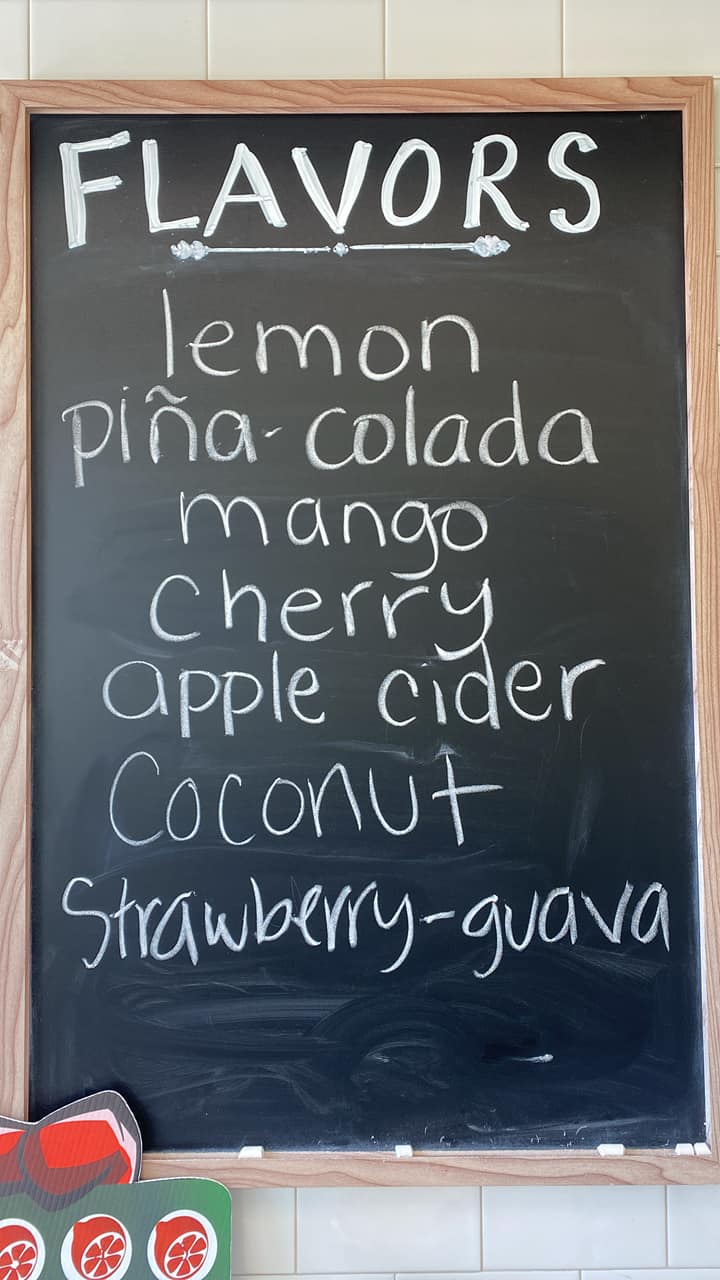 FLAVORS
lemon
piña-colada
mango
cherry
apple cider
Coconut
Strawberry-guava